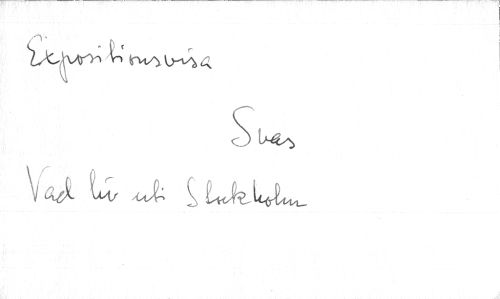 Expositionsvisa
Svas
Vad liv uti Stockholm